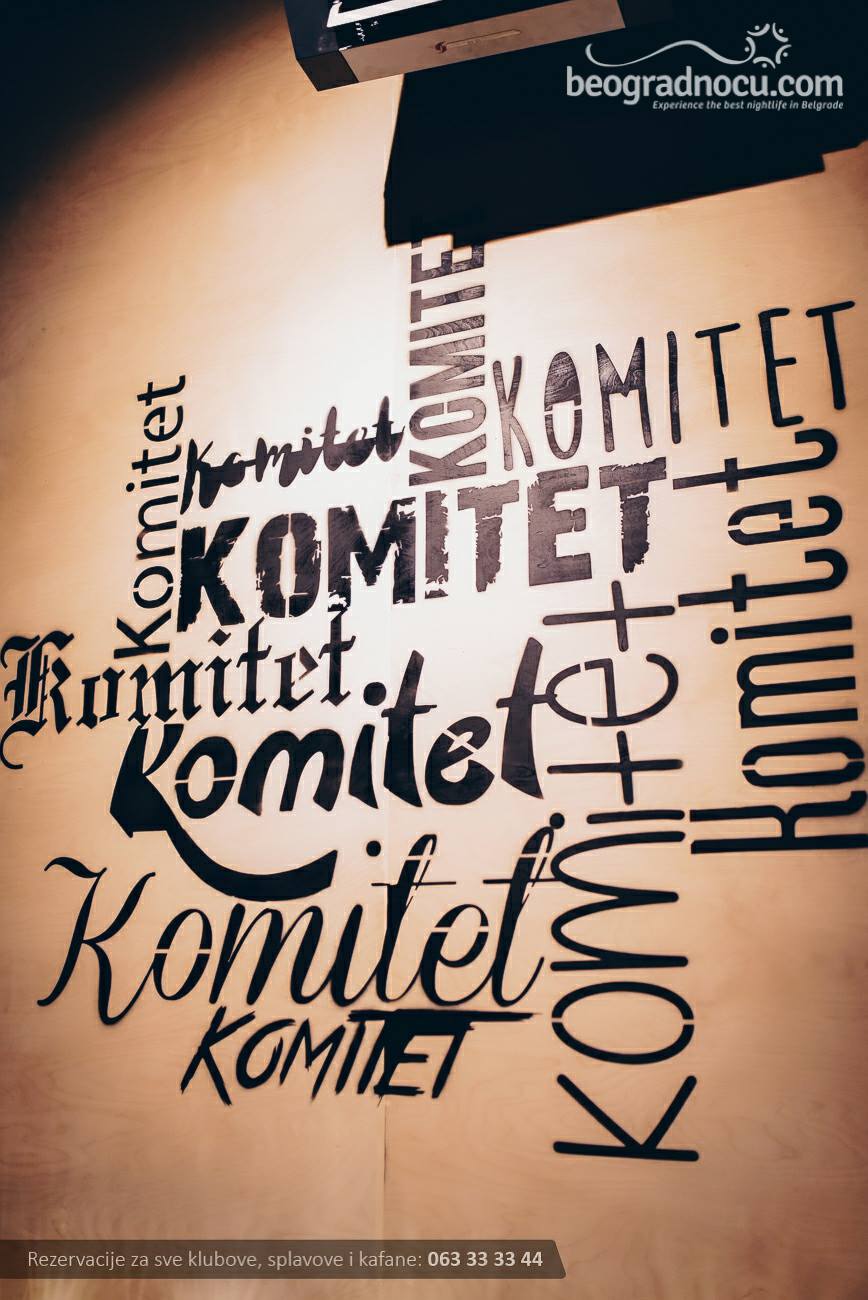 beogradnocu.com
Experience the best nightlife in Belgrade
KOMITET
KOMITET
Komitet
Komitet
KOMITET
Komitet
Komitet
Komitet
Komitet
Komitet
KOMITET
Rezervacije za sve klubove, splavove i kafane: 063 33 33 44